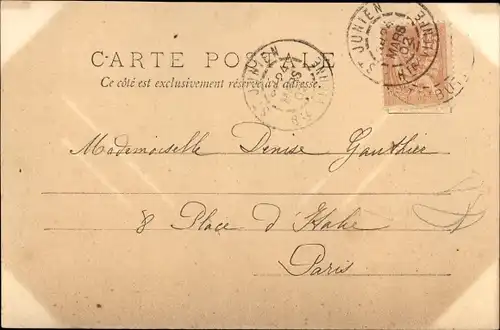 CARTE POSTALE
Ce côté est exclusivement réservé à l'adresse.
ST JUNIEN
MARS
02
HTE VIENNE
Mademoiselle Denise Gauthier
8 Place d'Italie
Paris